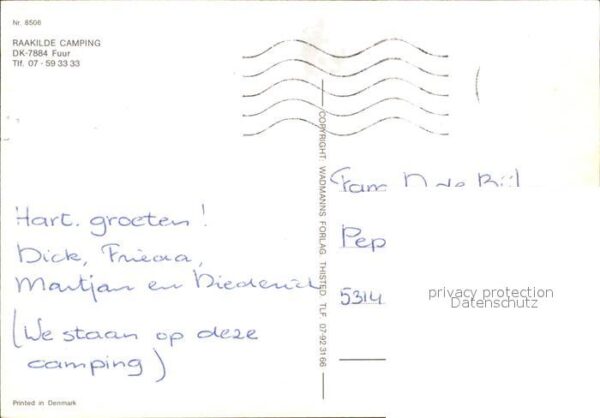 Nr. 8506
RAAKILDE CAMPING
DK-7884 Fuur
Tlf. 07 - 59 33 33
Hart. groeten!
Dick, Frieda,
Martjan en Diederick
(We staan op deze
camping)
Printed in Denmark
COPYRIGHT: WADMANNS FORLAG THISTED. TLF. 07-92 31 66
Fam
Pep
5314
privacy protection
Datenschutz